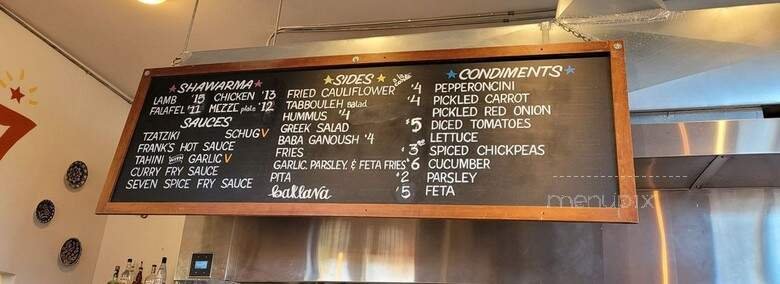 SHAWARMA
LAMB $15 CHICKEN $13
FALAFEL $11 MEZZE plate $12
SAUCES
TZATZIKI SCHUG V
FRANK'S HOT SAUCE
TAHINI with GARLIC V
CURRY FRY SAUCE
SEVEN SPICE FRY SAUCE
SIDES
FRIED CAULIFLOWER $4
TABBOULEH salad $4
HUMMUS $4
GREEK SALAD $5
BABA GANOUSH $4
FRIES $3
GARLIC, PARSLEY, & FETA FRIES $6
PITA $2
baklava $5
CONDIMENTS
PEPPERONCINI
PICKLED CARROT
PICKLED RED ONION
DICED TOMATOES
LETTUCE
SPICED CHICKPEAS
CUCUMBER
PARSLEY
FETA
menupix